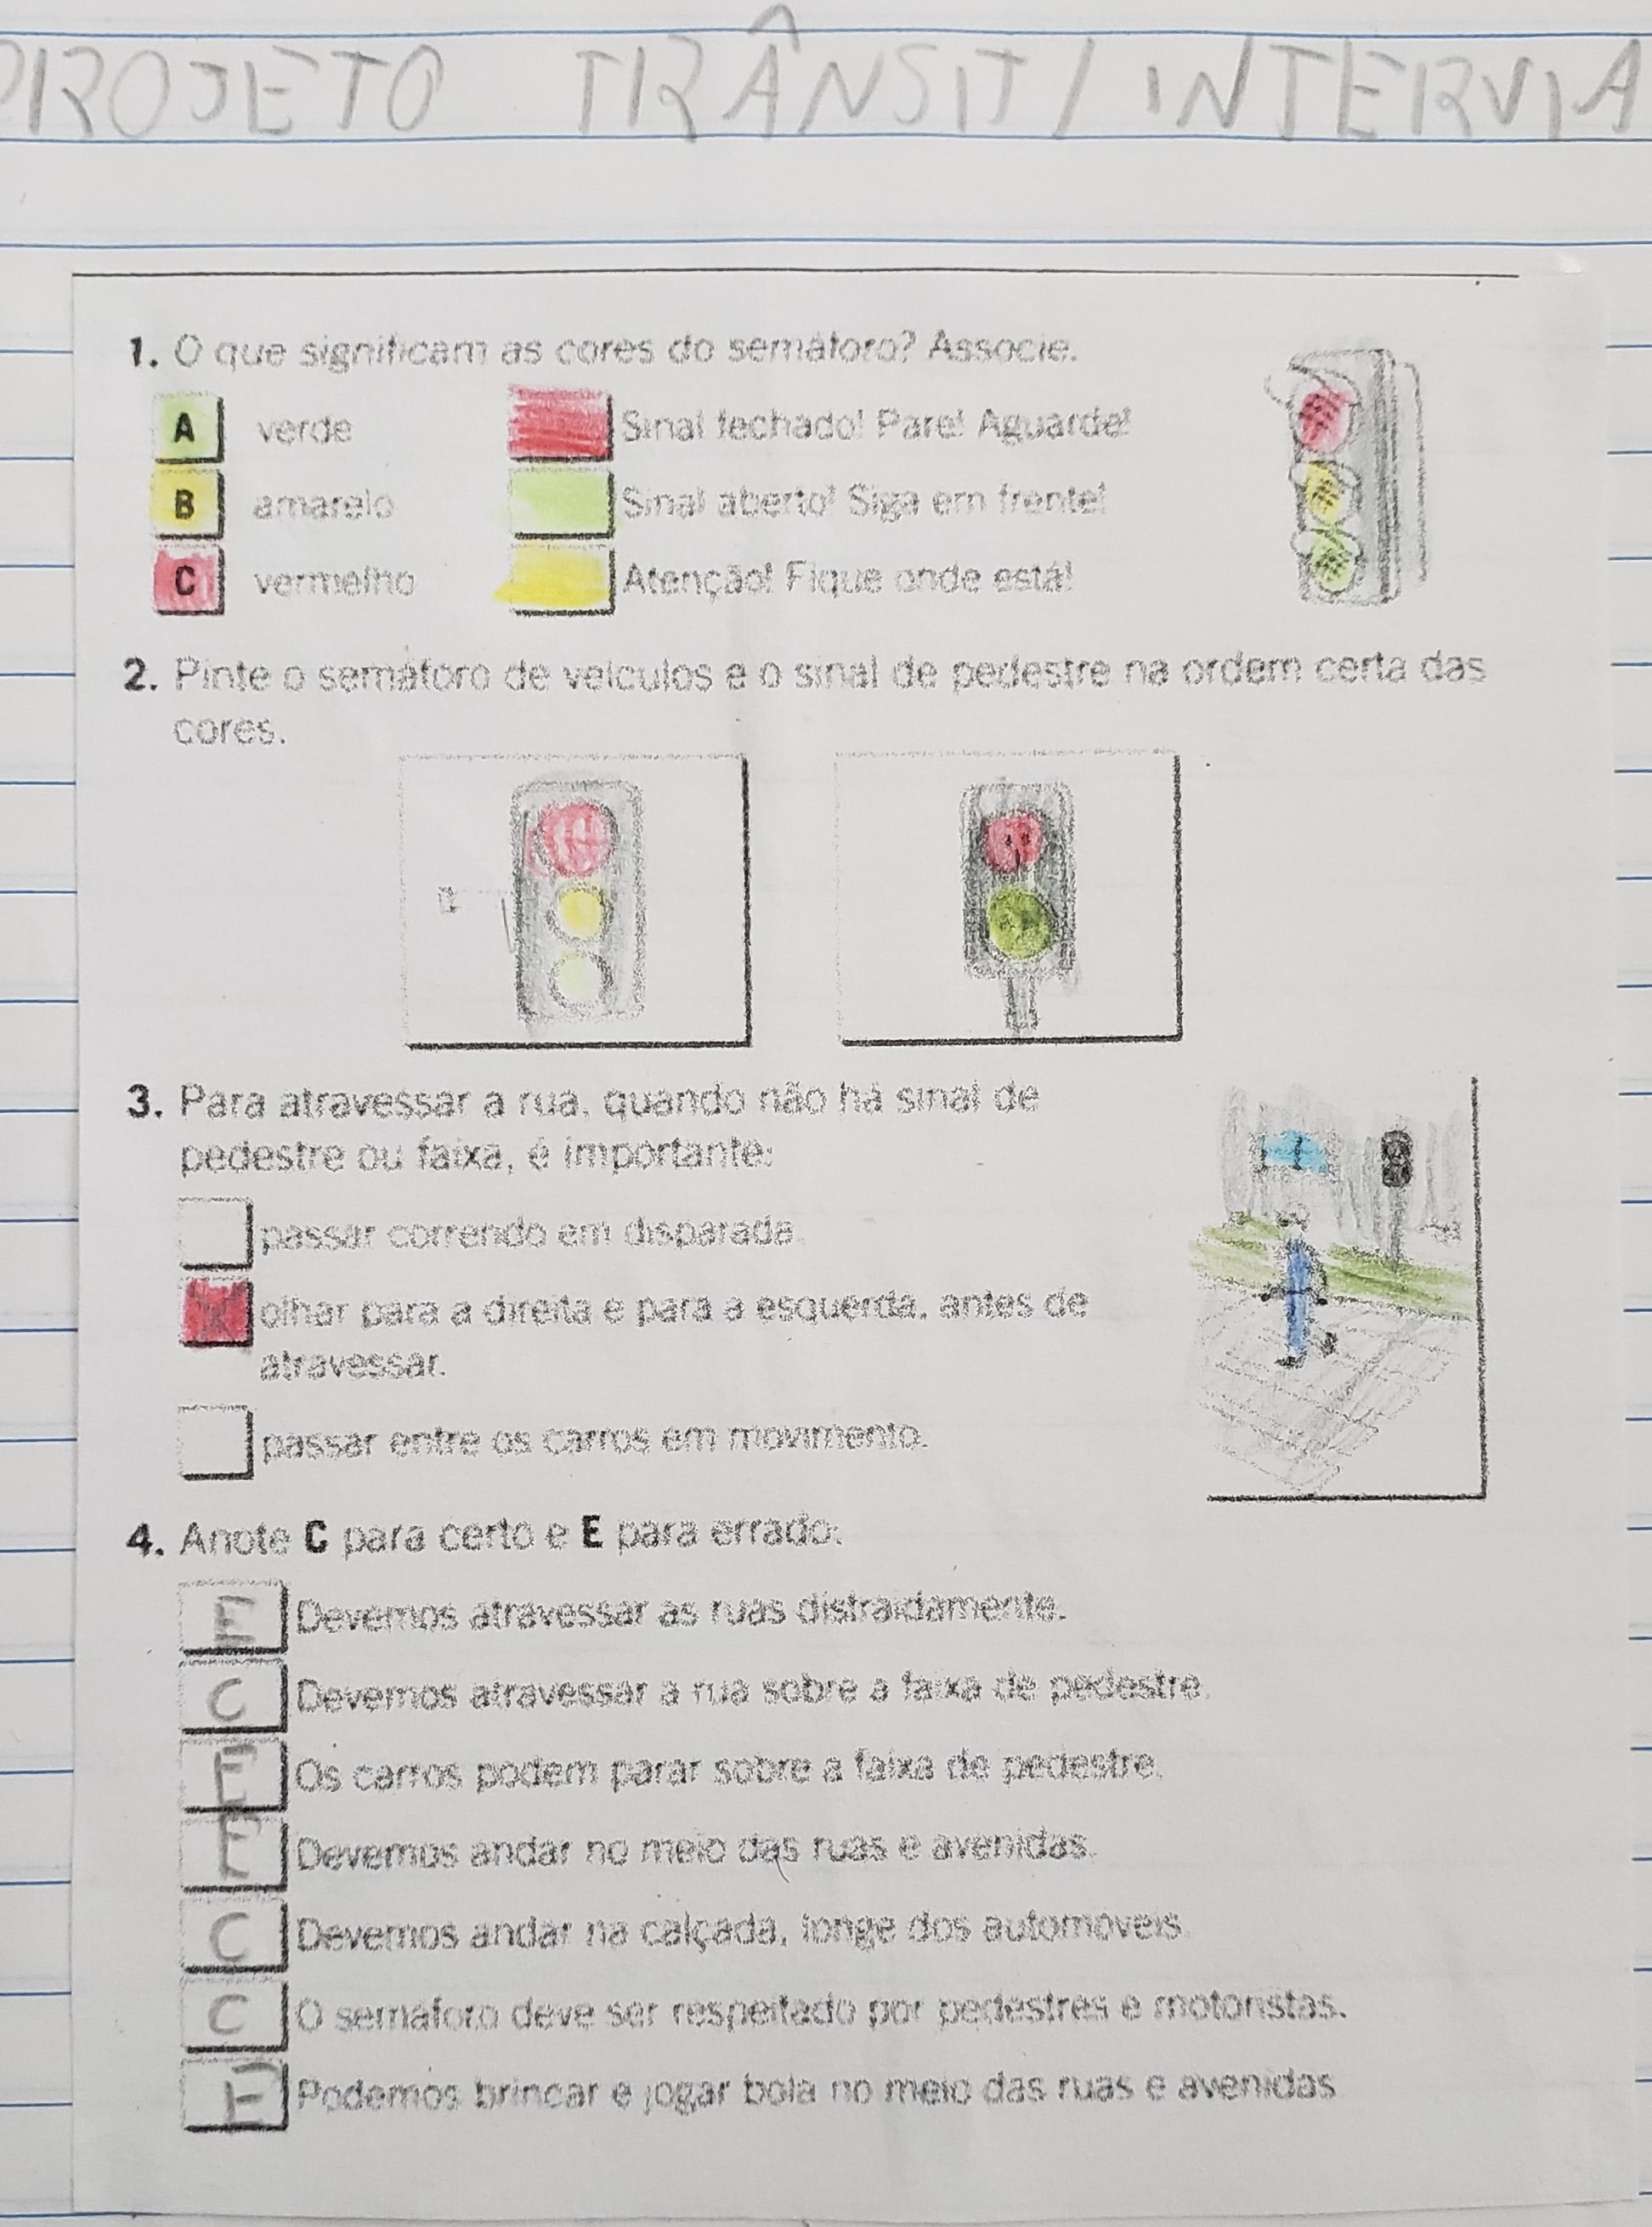 PROJETO TRÂNSIT/INTERVIA
1. O que significam as cores do semáforo? Associe.
A verde Sinal fechado! Pare! Aguarde!
B amarelo Sinal aberto! Siga em frente!
C vermelho Atenção! Fique onde está!
2. Pinte o semáforo de veículos e o sinal de pedestre na ordem certa das
cores.
3. Para atravessar a rua, quando não há sinal de
pedestre ou faixa, é importante:
passar correndo em disparada.
X olhar para a direita e para a esquerda, antes de
atravessar.
passar entre os carros em movimento.
4. Anote C para certo e E para errado:
E Devemos atravessar as ruas distraidamente.
C Devemos atravessar a rua sobre a faixa de pedestre.
E Os carros podem parar sobre a faixa de pedestre.
E Devemos andar no meio das ruas e avenidas.
C Devemos andar na calçada, longe dos automóveis.
C O semáforo deve ser respeitado por pedestres e motoristas.
E Podemos brincar e jogar bola no meio das ruas e avenidas.